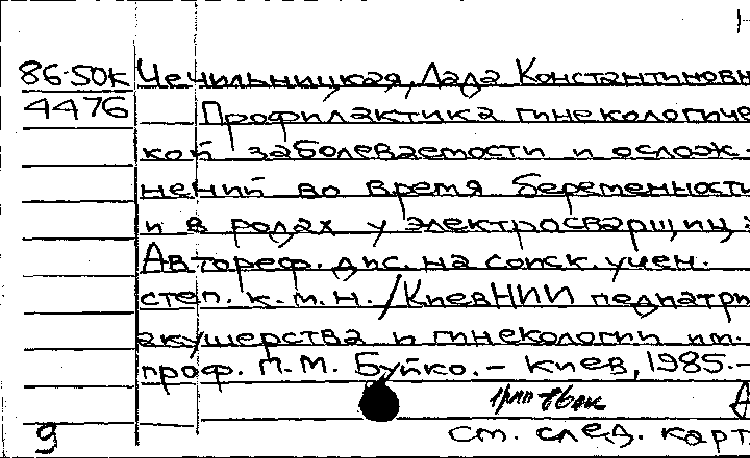 86-50к Чечильницкая, Лада Константиновн
4476 Профилактика гинекологичес
кой заболеваемости и ослож-
нений во время беременности
и в родах у электросварщиц:
Автореф. дис. на соиск. учен.
степ. к.м.н. / Киев НИИ педиатри
акушерства и гинекологии им.
проф. П.М. Буйко. – Киев, 1985. –
9 ст. след. карт